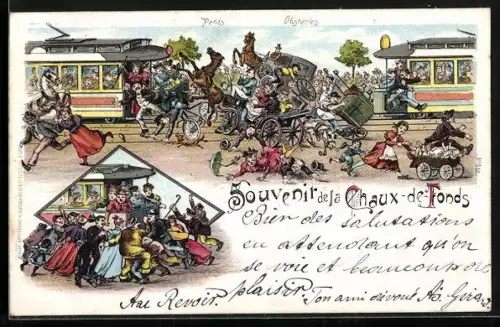 Petits Obstacles
Souvenir de la Chaux-de-Fonds
Bien des salutations
en attendant qu'on
se voie et beaucoup de
plaisir.
Au Revoir
Ton ami dévoué